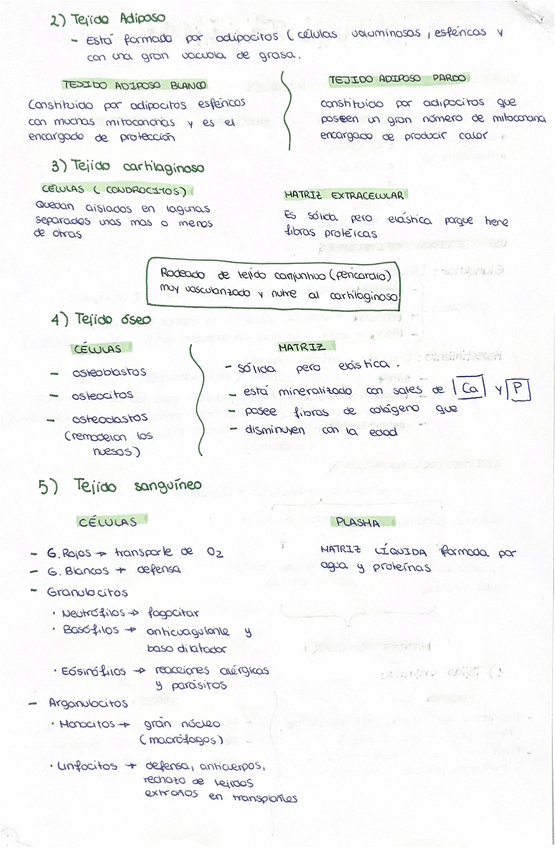 2) Tejido Adiposo
- Está formado por adipocitos (células voluminosas, esféricas y
con una gran vacuola de grasa.
TEJIDO ADIPOSO BLANCO
Constituido por adipocitos esféricos
con muchas mitocondrias y es el
encargado de protección
TEJIDO ADIPOSO PARDO
constituido por adipocitos que
poseen un gran número de mitocondria
encargado de producir calor
3) Tejido cartilaginoso
CÉLULAS (CONDROCITOS)
Quedan aislados en lagunas
separados unas mas o menos
de otras
MATRIZ EXTRACELULAR
Es sólida pero elástica porque tiene
fibras protéicas
Rodeado de tejido conjuntivo (pericardio)
muy vascularizado y nutre al cartilaginoso
4) Tejido óseo
CÉLULAS
- osteoblastos
- osteocitos
- osteoclastos
(remodelan los
huesos)
MATRIZ
- sólida pero elástica.
- está mineralizado con sales de Ca y P
- posee fibras de colágeno que
- disminuyen con la edad
5) Tejido sanguíneo
CÉLULAS
- G. Rojos → transporte de O2
- G. Blancos → defensa
- Granulocitos
· Neutrófilos → fagocitar
· Basófilos → anticuagulante y
baso dilatador
· Eosinófilos → reacciones alérgicas
y parásitos
- Arganulocitos
· Monocitos → gran núcleo
(macrófagos)
· Linfocitos → defensa, anticuerpos,
rechazo de tejidos
extraños en transplantes
PLASMA
MATRIZ LÍQUIDA formada por
agua y proteínas